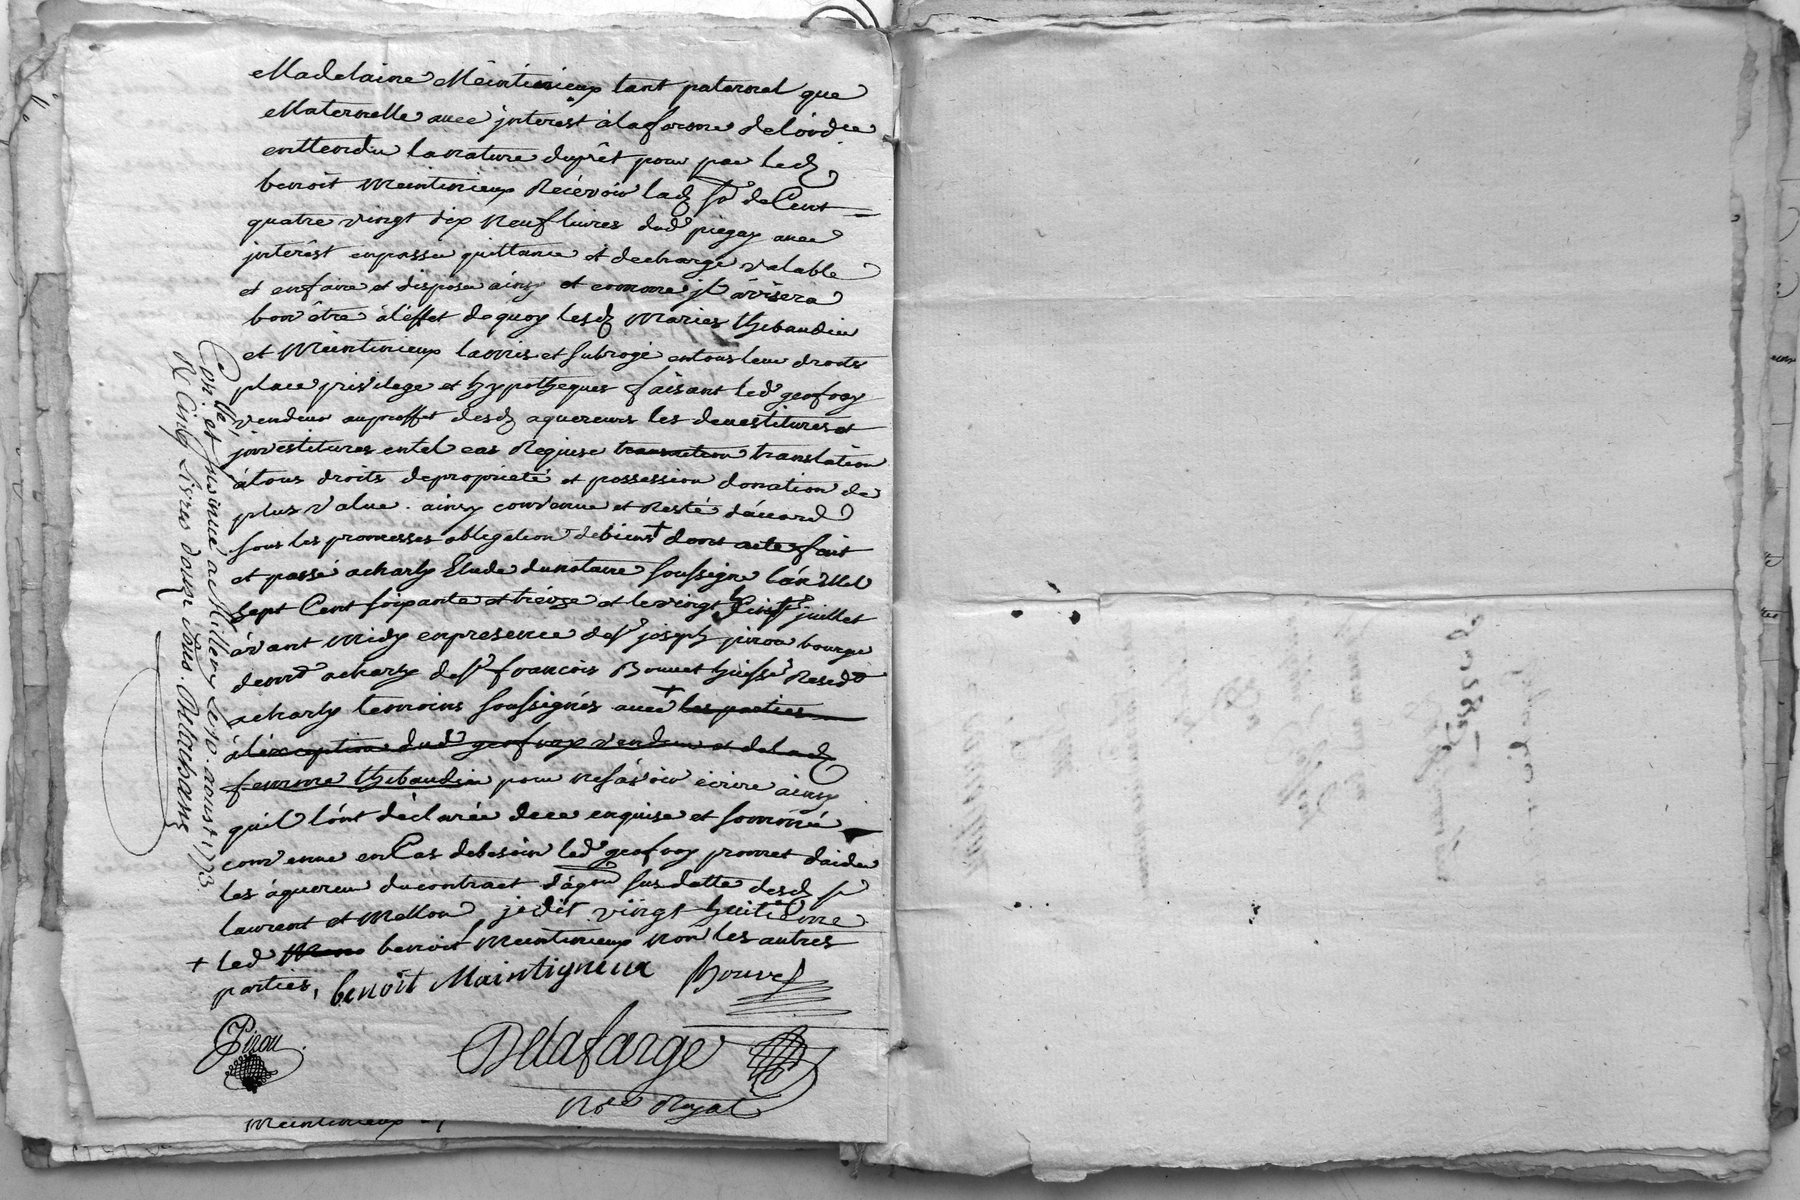 Madelaine Meintinieux tant paternel que
Maternelle avec jnterest à la forme de l'ord^ce
enttendu la nature du prêt pour par led
benoit Meintinieux Récevoir lad s^e de Cent
quatre vingt dix neuf livres dud piegay avec
jnterêst en passer quittance et decharge valable
et en faire et disposer ainsy et comme jl avisera
bon être à l'effet de quoy lesd Maries thibaudier
et Meintinieux la mis et subrogé en tous leur droits
place privilege et hypotheques faisant led geofroy
vendeur au proffit desd aquereurs les devestitures et
jnvestitures en tel cas Requise translation
à tous droits de proprieté et possession donation de
plus value. ainsy convenue et Resté d'accord
sous les promesses obligation de biens + dont acte fait
et passé a charly Etude du notaire soussigné l'an Mil
sept Cent soixante et treize et le vingt juillet
avant Midy en presence de s^r joseph pirou bourge
demt a charly de s^r françois Bouvet huissr Resid^t
a charly temoins soussignés avec + les parties
à l'exception dud geofroy vendeur et de lad
femme thibaudier pour ne sàvoir écrire ainsy
qu'il l'ont déclarée de ce enquise et sommé
convenue en Cas de besoin led geofroy promet d'aider
les àquereur du contract d'àqon susdatte desd s^r
laurent et Mellon, je dit vingt huitième
+ led benoit Meintinieux non les autres
parties, benoît Maintigneux Bouvet
Pirou
Delafarge
No^re Royal
Meintinieux
Con.lé et jnsinué a Millery le 10. aoust 1773.
R Cinq Livres douze sous. Delachasme